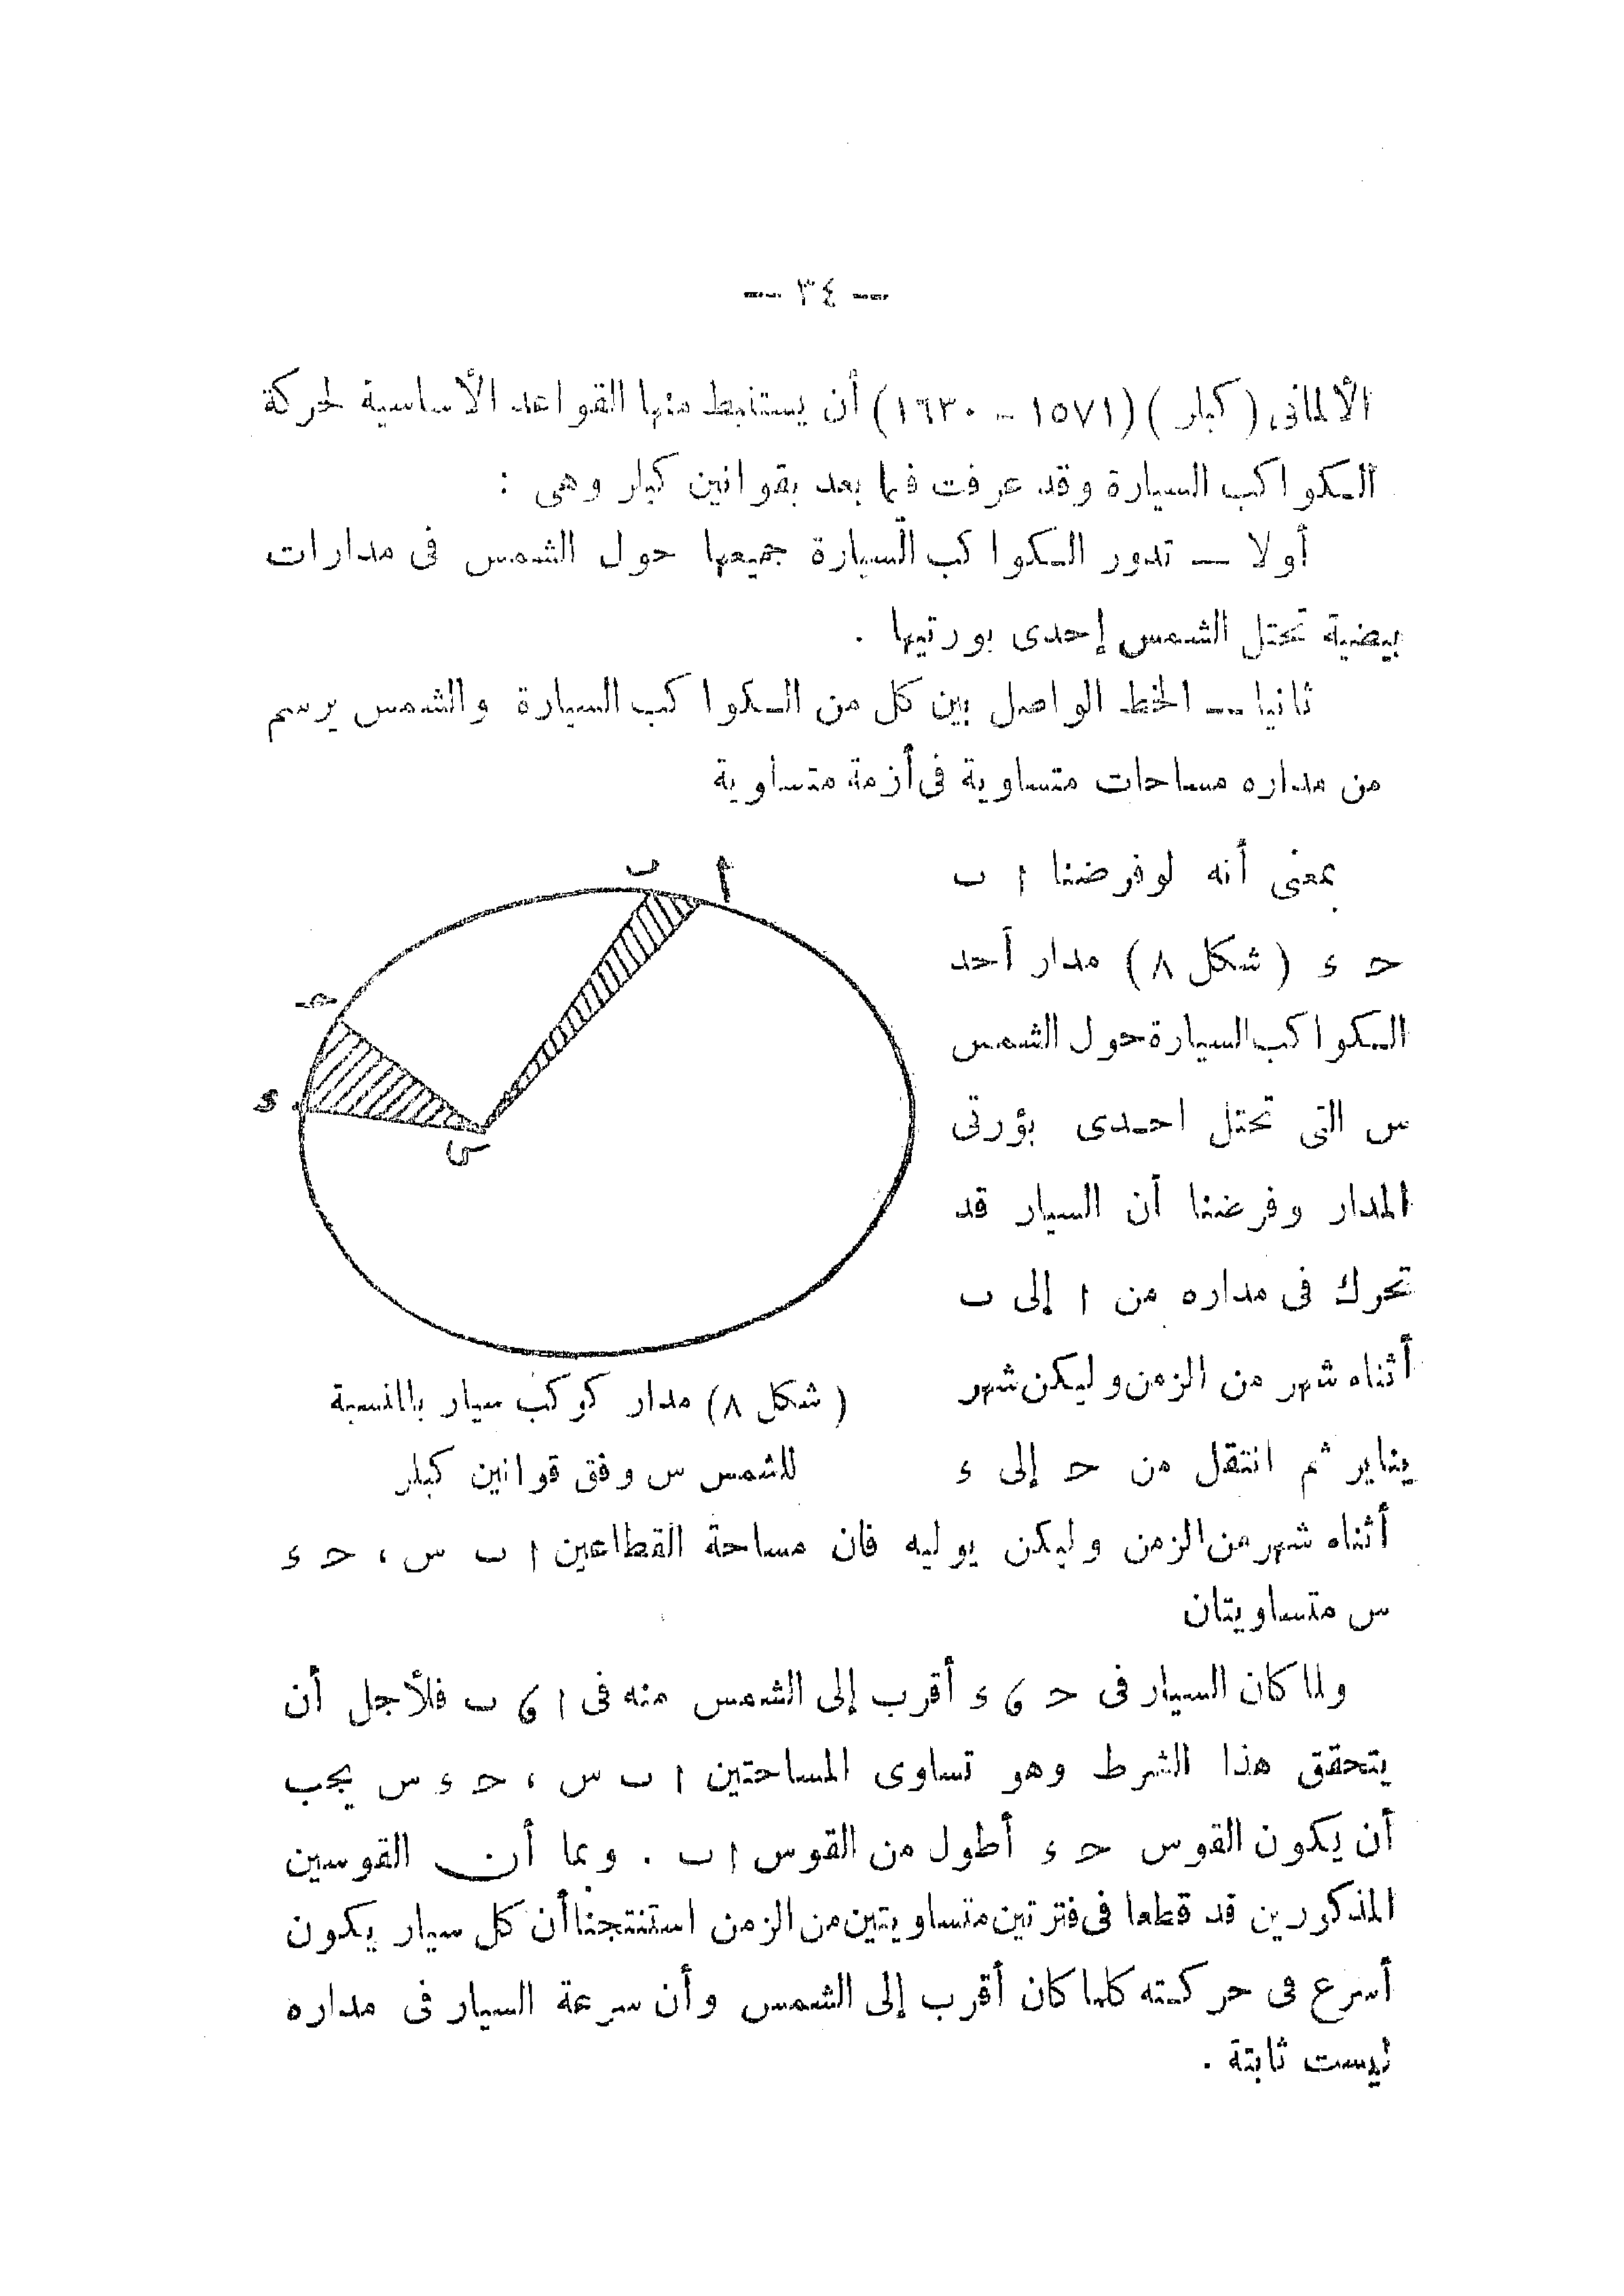 — ٣٤ —
الألمانى (كبلر) (١٥٧١ - ١٦٣٠) أن يستنبط منها القواعد الأساسية لحركة
الكواكب السيارة وقد عرفت فيما بعد بقوانين كبلر وهى :
أولا — تدور الكواكب السيارة جميعها حول الشمس فى مدارات
بيضية تحتل الشمس إحدى بورتيها .
ثانيا — الخط الواصل بين كل من الكواكب السيارة والشمس يرسم
من مداره مساحات متساوية فى أزمة متساوية
بمعنى أنه لو فرضنا ا ب
حـ ء (شكل ٨) مدار أحد
الكواكب السيارة حول الشمس
س التى تحتل احدى بؤرتى
المدار وفرضنا أن السيار قد
تحرك فى مداره من ا إلى ب
أثناء شهر من الزمن وليكن شهر
يناير ثم انتقل من حـ إلى ء
أ
ب
حـ
ء
س
(شكل ٨) مدار كوكب سيار بالنسبة
للشمس س وفق قوانين كبلر
أثناء شهر من الزمن وليكن يوليه فان مساحة القطاعين ا ب س ، حـ ء
س متساويتان
ولما كان السيار فى حـ ، ء أقرب إلى الشمس منه فى ا ، ب فلأجل أن
يتحقق هذا الشرط وهو تساوى المساحتين ا ب س ، حـ ء س يجب
أن يكون القوس حـ ء أطول من القوس ا ب . وبما أن القوسين
المذكورين قد قطعا فى فترتين متساويتين من الزمن استنتجنا أن كل سيار يكون
أسرع فى حركته كلما كان أقرب إلى الشمس وأن سرعة السيار فى مداره
ليست ثابتة .